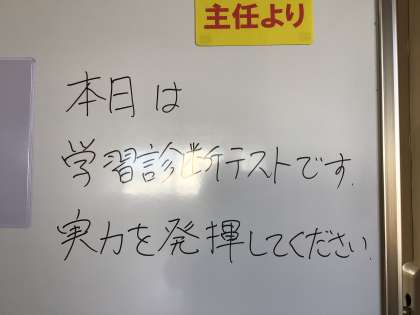 主任より
本日は
学習診断テストです.
実力を発揮してください.